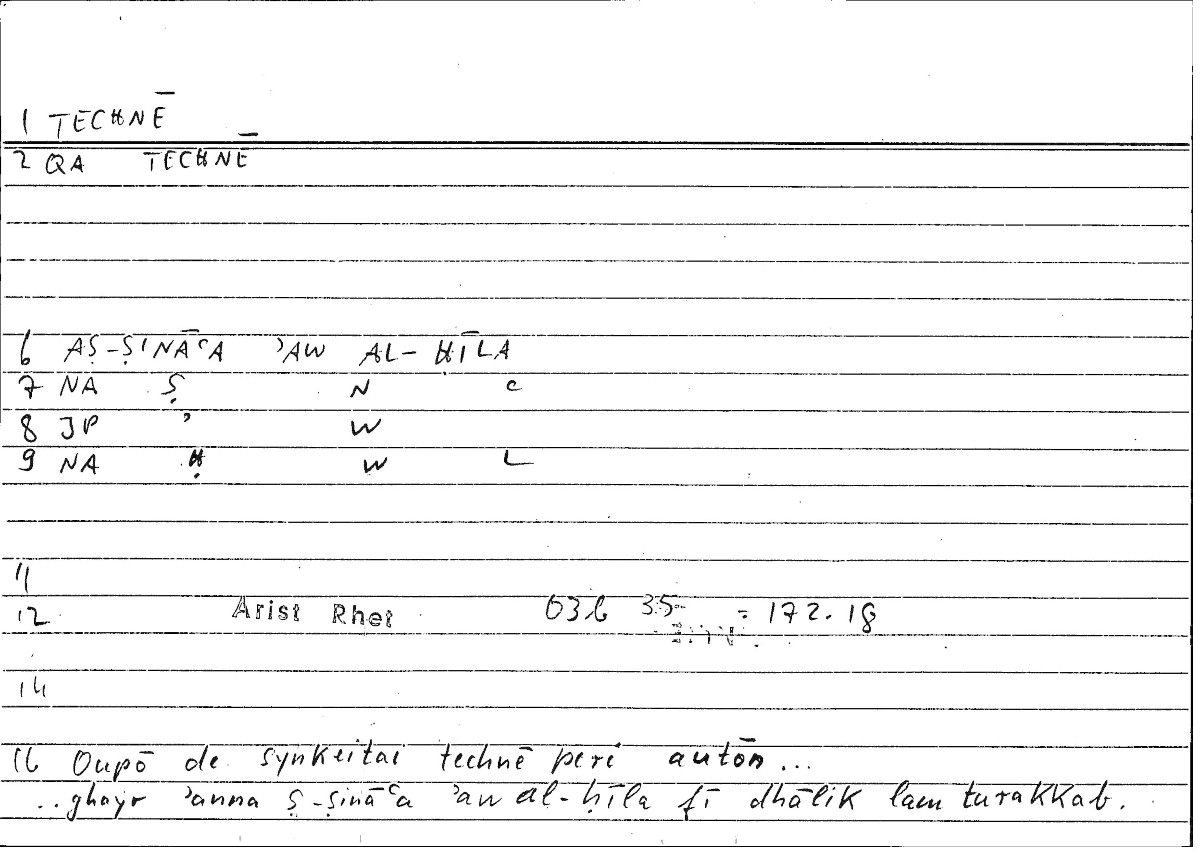 1 TECHNĒ
2 QA TECHNĒ
6 AṢ-ṢINĀʿA ʾAW AL-ḤĪLA
7 NA Ṣ N ʿ
8 JP ʾ W
9 NA Ḥ W L
11
12 Arist Rhet 03b 35 = 172.18
14
16 Oupō de synkeitai technē peri autōn...
..ghayr ʾanna ṣ-ṣināʿa ʾaw al-ḥīla fī dhālik lam turakkab.